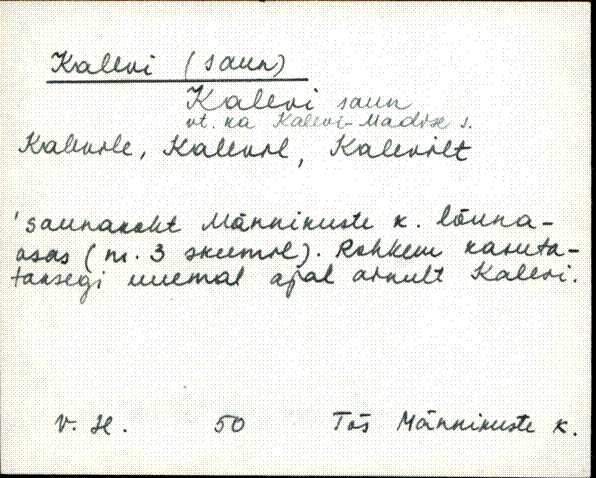 Kalevi (saun)
Kalevi saun
vt. ka Kalevi-Madise s.
Kalevile, Kalevil, Kalevilt
'saunakoht Männikuste k. lõuna-
osas (nr. 3 skeemil). Rohkem kasuta-
taksegi uuemal ajal ainult Kalevi.
V. H. 50 Tõs Männikuste k.